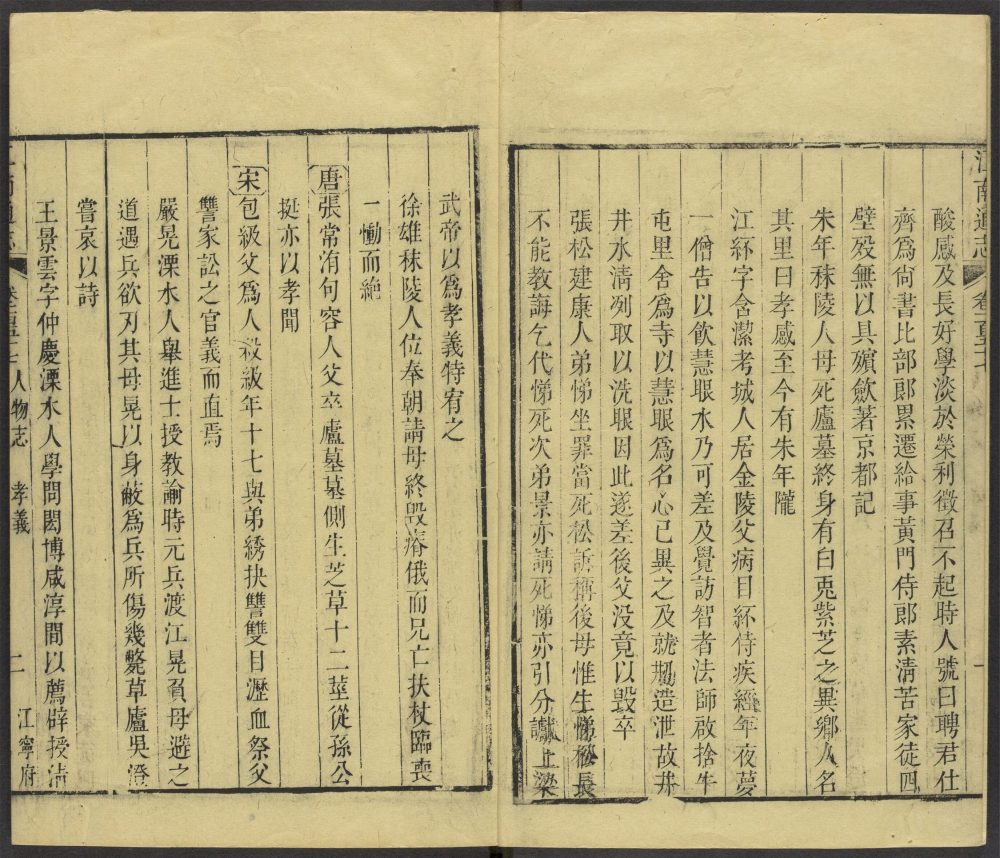 江南通志 卷一百五十七
酸感及長好學淡於榮利徵召不起時人號曰聘君仕
齊爲尚書比部郎累遷給事黃門侍郎素淸苦家徒四
壁殁無以具殯斂著京都記
朱年秣陵人母死廬墓終身有白兎紫芝之異鄉人名
其里曰孝感至今有朱年隴
江紑字含潔考城人居金陵父病目紑侍疾經年夜夢
一僧告以飮慧眼水乃可差及覺訪智者法師啟捨牛
屯里舍爲寺以慧眼爲名心已異之及就剏造泄故井
井水淸冽取以洗眼因此遂差後父没竟以毀卒
張松建康人弟悌坐罪當死松訴稱後母惟生悌松長
不能敎誨乞代悌死次弟景亦請死悌亦引分讞上梁
武帝以爲孝義特宥之
徐雄秣陵人位奉朝請母終毀瘠俄而兄亡扶杖臨喪
一慟而絶
唐張常洧句容人父卒廬墓墓側生芝草十二莖從孫公
挺亦以孝聞
宋包級父爲人殺級年十七與弟綉抉讐雙目瀝血祭父
讐家訟之官義而直焉
嚴晃溧水人舉進士授敎諭時元兵渡江晃負母避之
道遇兵欲刃其母晃以身蔽爲兵所傷幾斃草廬吳澄
嘗哀以詩
王景雲字仲慶溧水人學問閎博咸淳間以薦辟授淸
通志 卷 人物志 孝義 二 江寧府